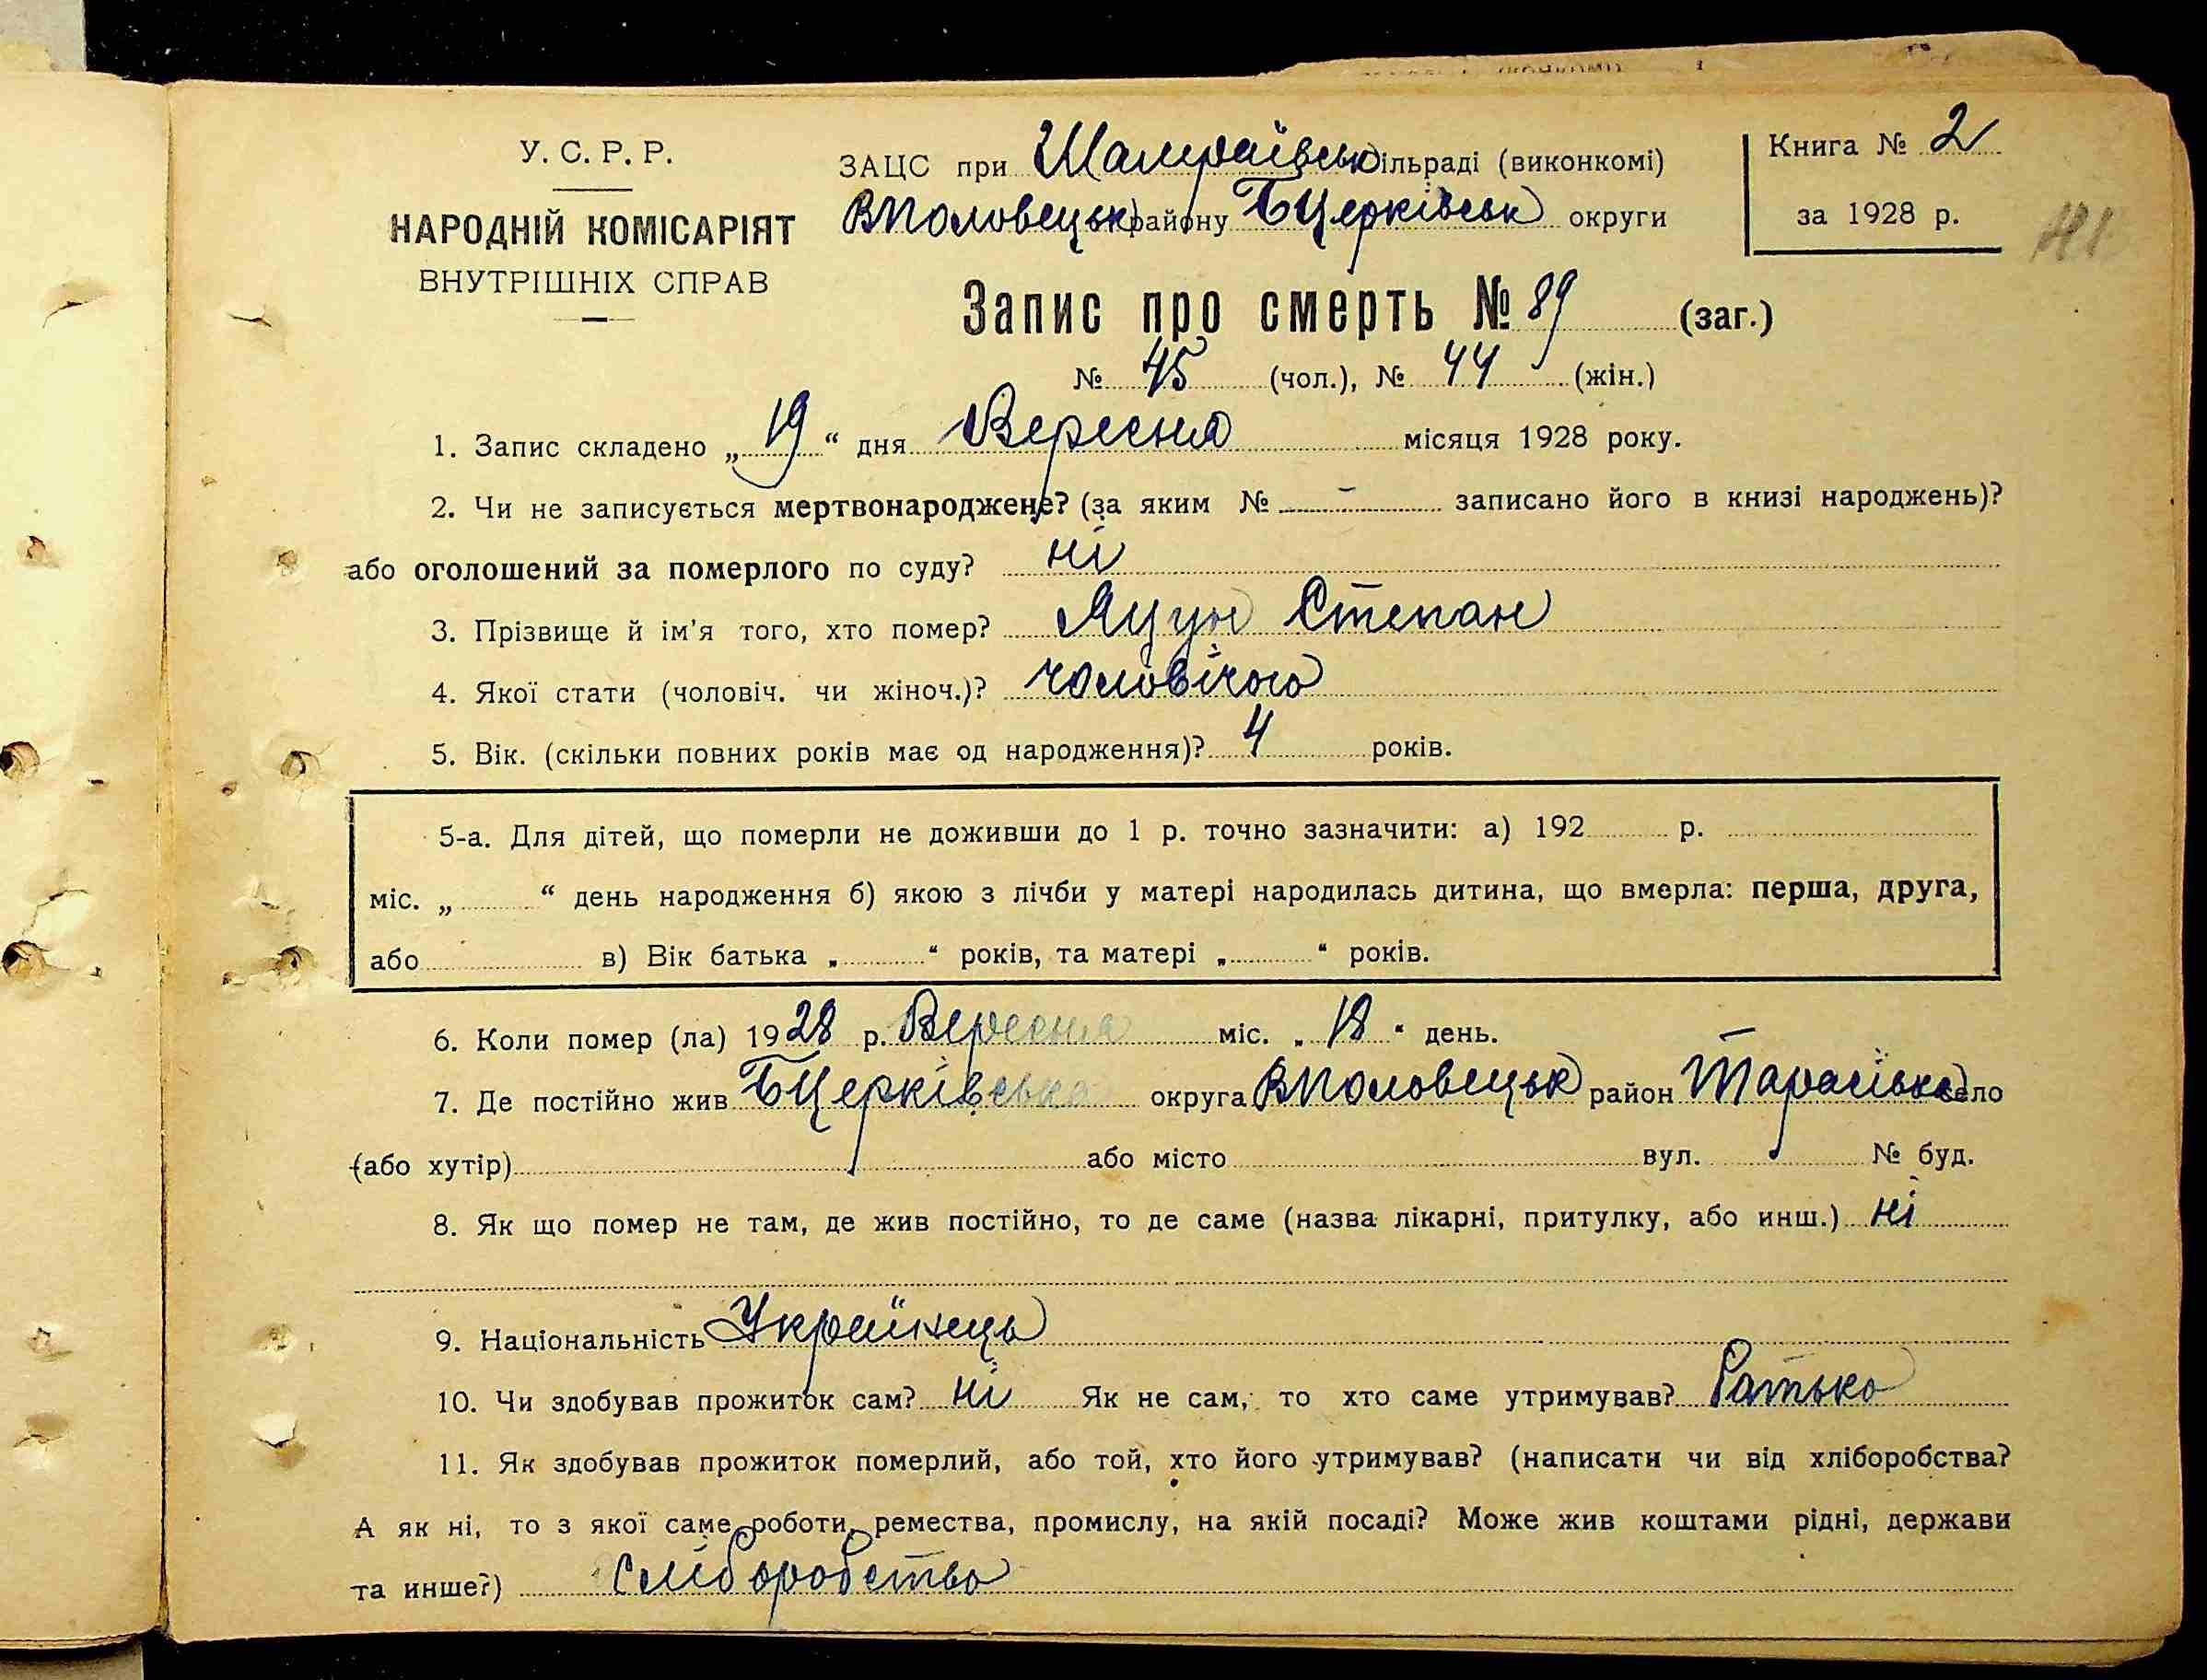 У. С. Р. Р.
НАРОДНІЙ КОМІСАРІЯТ
ВНУТРІШНІХ СПРАВ
ЗАЦС при Шамраївськ сільраді (виконкомі)
ВПоловецьк району БЦерківськ округи
Книга № 2
за 1928 р.
Запис про смерть № 89 (заг.)
№ 45 (чол.), № 44 (жін.)
1. Запис складено „19“ дня Вересня місяця 1928 року.
2. Чи не записується мертвонароджене? (за яким № – записано його в книзі народжень)?
або оголошений за померлого по суду? ні
3. Прізвище й ім'я того, хто помер? Яцун Степан
4. Якої стати (чоловіч. чи жіноч.)? чоловічого
5. Вік. (скільки повних років має од народження)? 4 років.
5-а. Для дітей, що померли не доживши до 1 р. точно зазначити: а) 192 р.
міс. „ “ день народження б) якою з лічби у матері народилась дитина, що вмерла: перша, друга,
або в) Вік батька „ “ років, та матері „ “ років.
6. Коли помер (ла) 1928 р. Вересня міс. „18“ день.
7. Де постійно жив БЦерківська округа ВПоловецьк район село
(або хутір) або місто вул. № буд.
8. Як що помер не там, де жив постійно, то де саме (назва лікарні, притулку, або инш.) ні
9. Національність Українець
10. Чи здобував прожиток сам? ні Як не сам, то хто саме утримував? Батько
11. Як здобував прожиток померлий, або той, хто його утримував? (написати чи від хліборобства?
А як ні, то з якої саме роботи, ремества, промислу, на якій посаді? Може жив коштами рідні, держави
та инше?) Хліборобство